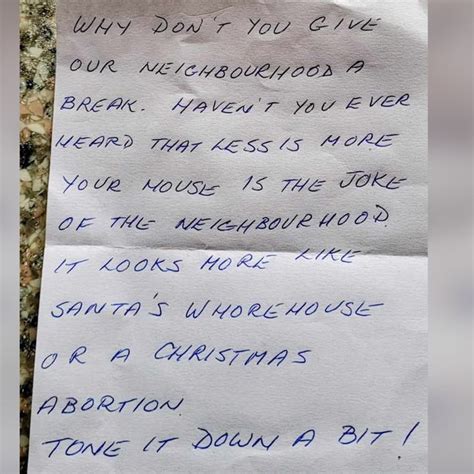 WHY DON'T YOU GIVE
OUR NEIGHBOURHOOD A
BREAK. HAVEN'T YOU EVER
HEARD THAT LESS IS MORE
YOUR HOUSE IS THE JOKE
OF THE NEIGHBOURHOOD.
IT LOOKS MORE LIKE
SANTA'S WHOREHOUSE
OR A CHRISTMAS
ABORTION.
TONE IT DOWN A BIT!